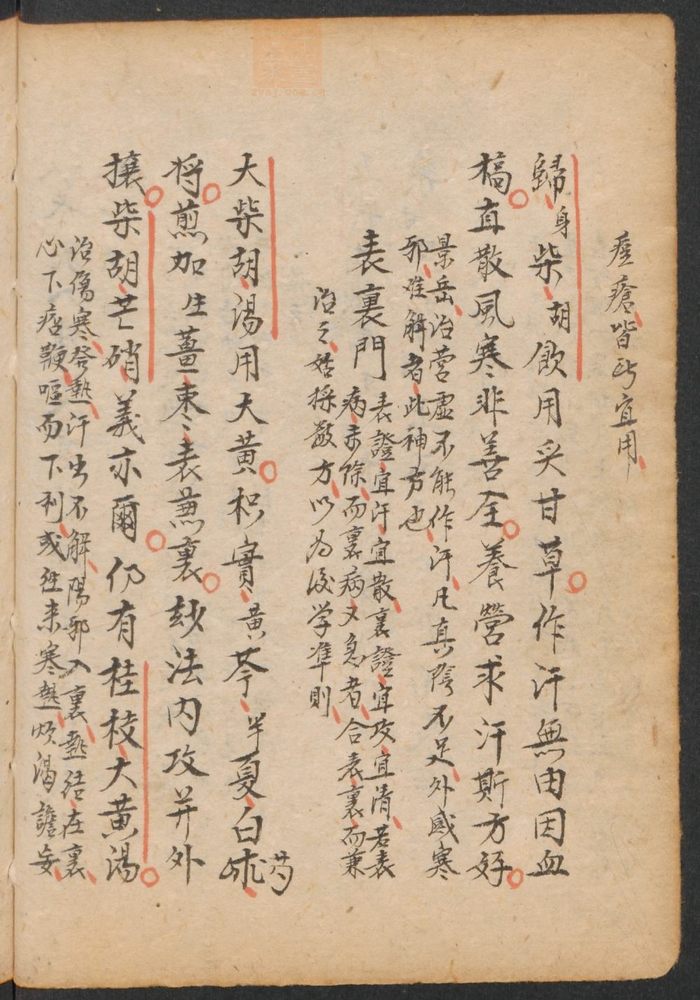 痘瘡皆所宜用
歸身柴胡飲用炙甘草作汗無由因血
槁直散風寒非善全養營求汗斯方好
景岳治营虛不能作汗凡真陰不足外感寒
邪难解者此神方也
表裏門
表證宜汗宜散裏證宜攻宜清若表
病未除而裏病又急者合表裏而兼
治之姑採数方以為後学準則
大柴胡湯用大黄枳實黄芩半夏白朮芍
將煎加生薑棗表兼裏玅法内攻并外
攘柴胡芒硝義亦爾仍有桂枝大黄湯
治傷寒發熱汗出不解陽邪入裏熱结在裏
心下痞鞕嘔而下利或徃来寒熱烦渴譫妄